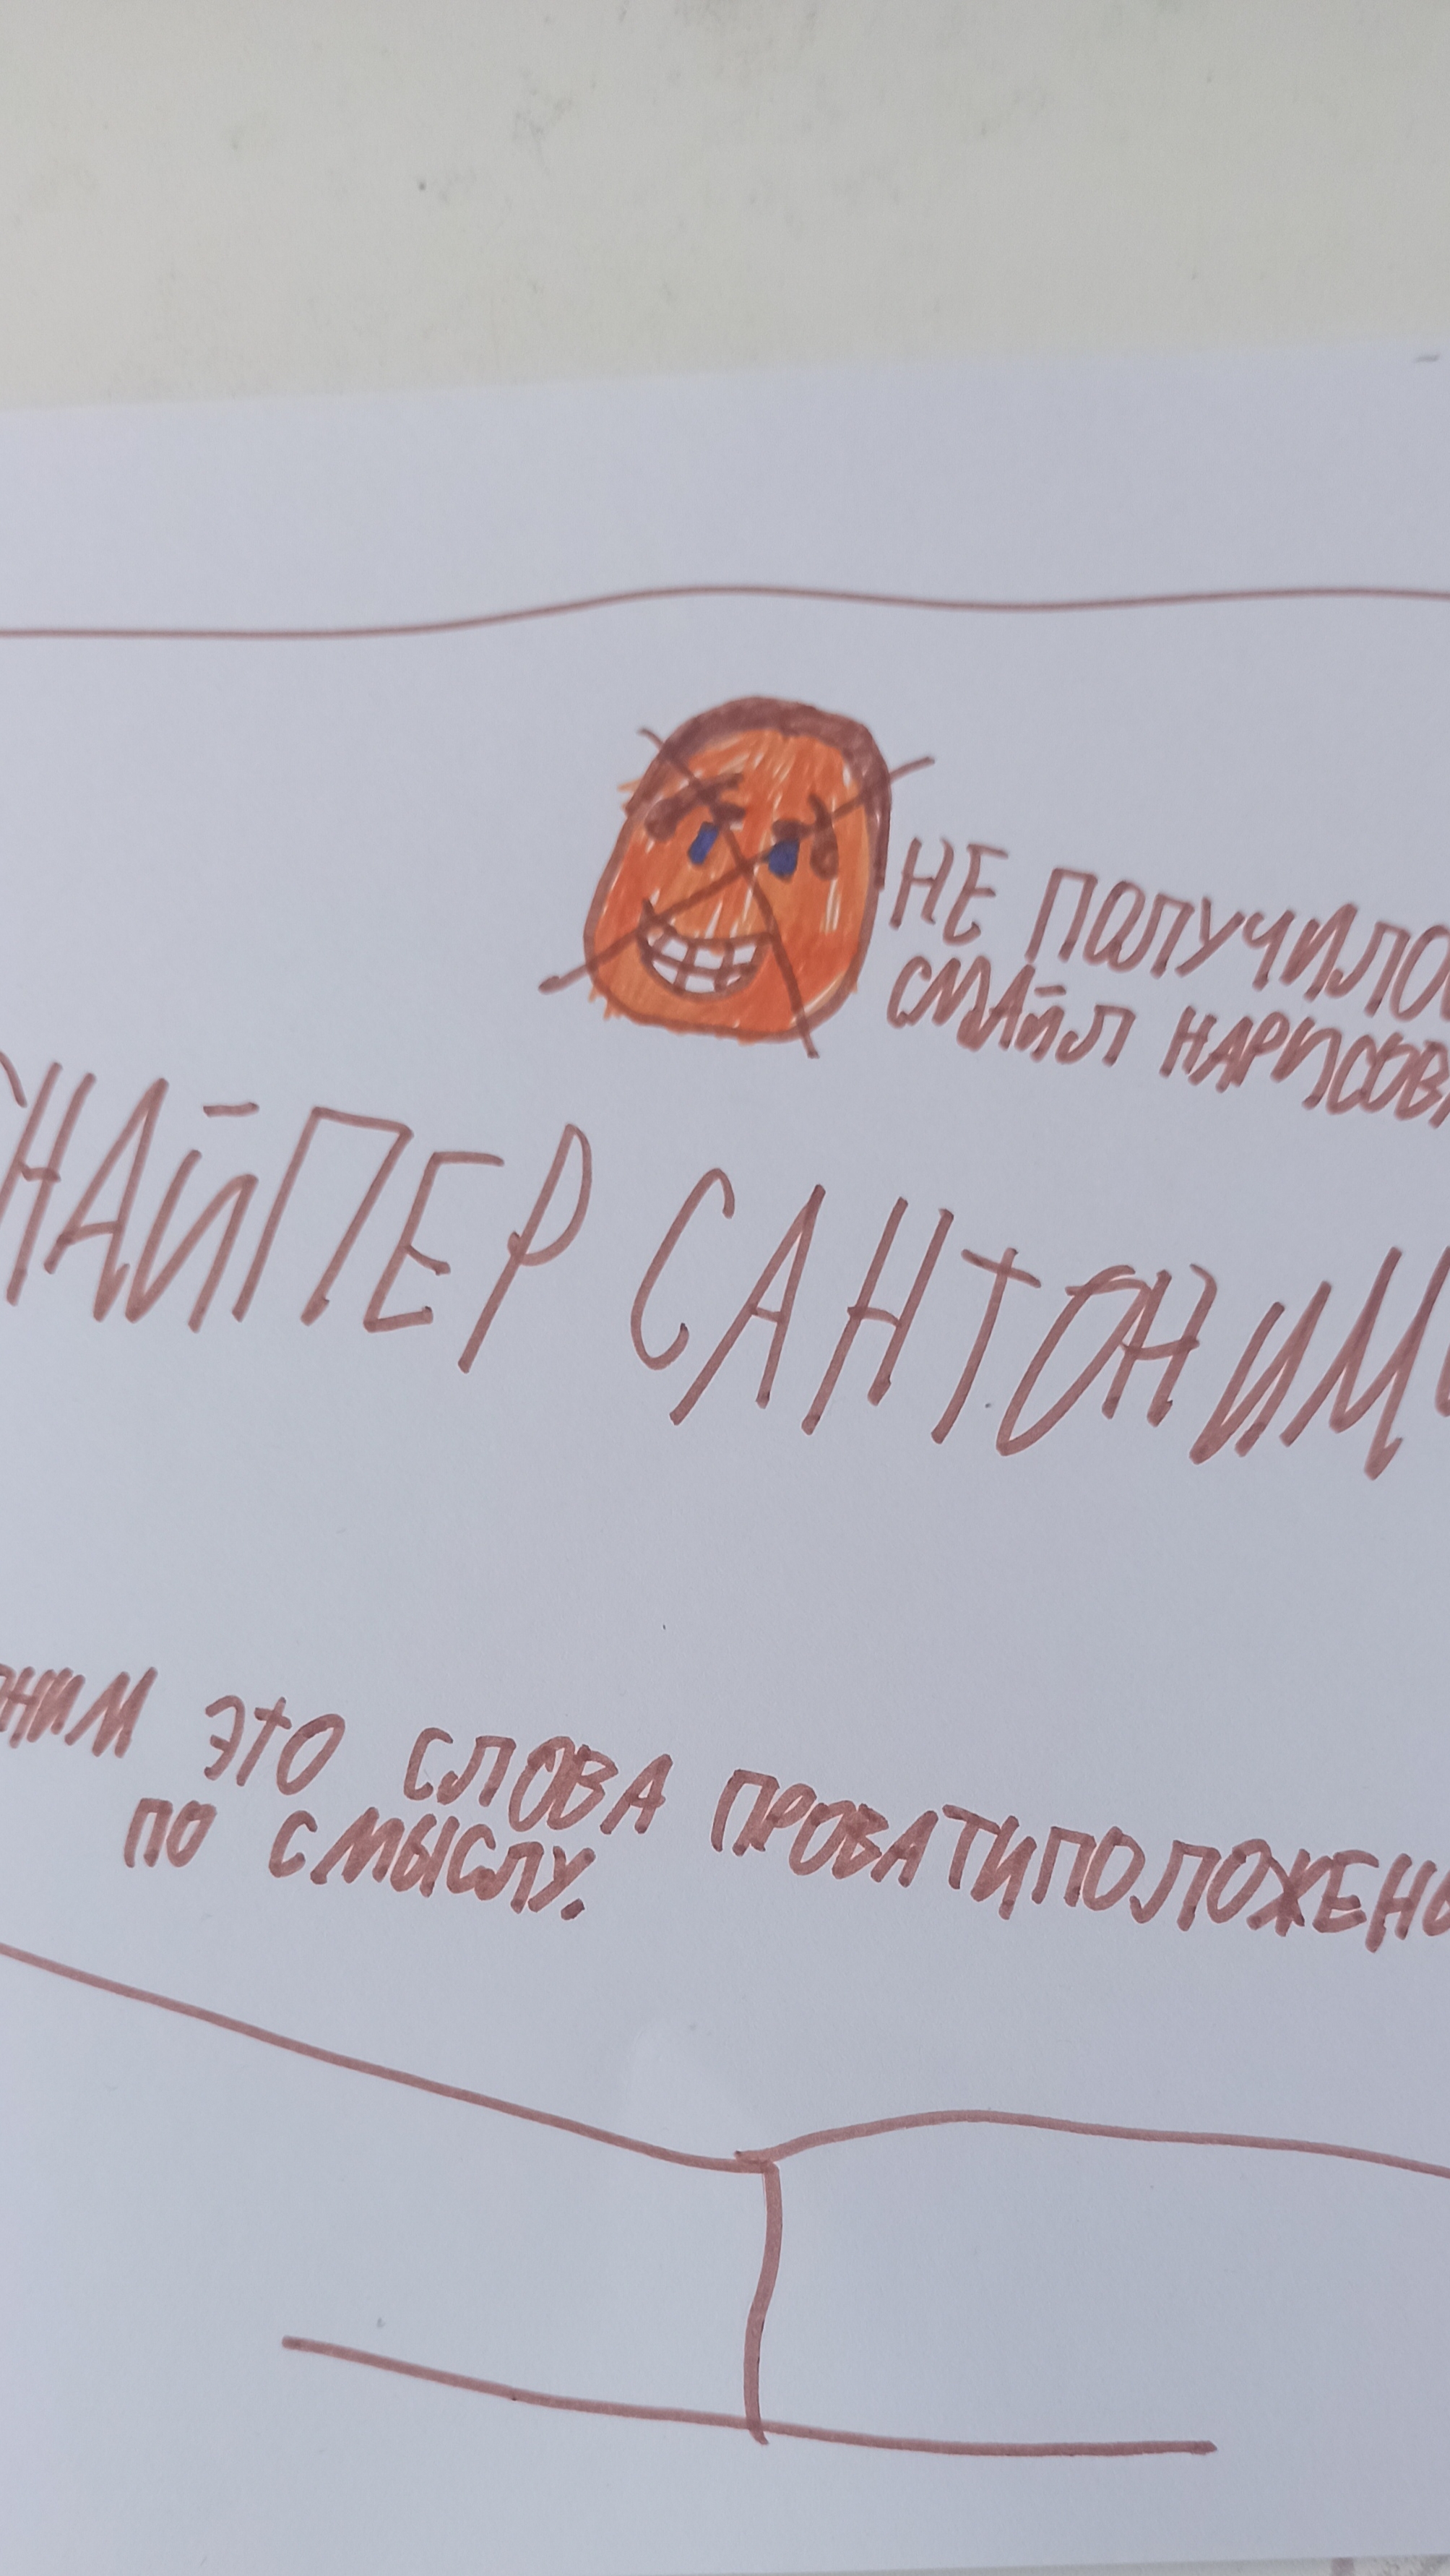 НЕ ПОЛУЧИЛО
СМАЙЛ НАРИСОВ
СНАЙПЕР САНТОНИМ
ОНИМ ЭТО СЛОВА ПРОВАТИПОЛОЖЕНЫ
ПО СМЫСЛУ.